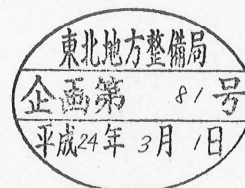 東北地方整備局
企画第 81 号
平成24年 3月 1日